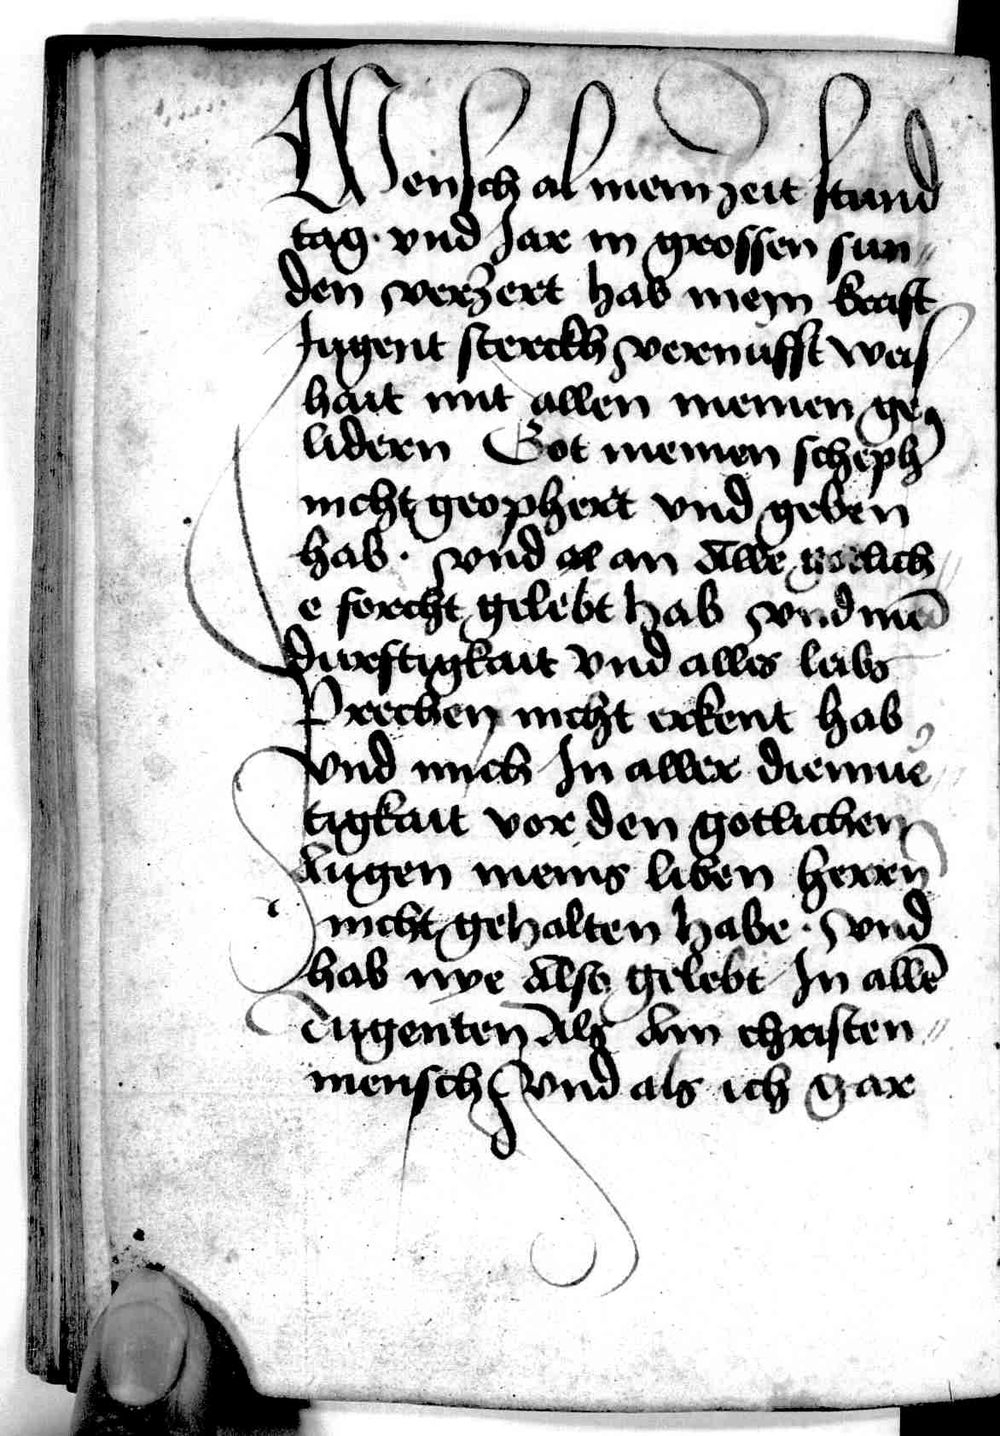 Mensch al mein zeit stund
tag · vnd Jar in grossen sun〃
den verzert hab mein krafft
Jugent sterckh vernufft weis
hait mit allen meinen ge〃
lidern Got meinen scheph
nicht geophert vnd geben
hab · vnd al an alle gotlich〃
e forcht gelebt hab vnd mē
durftigkait vnd alles leibs
Prechen nicht erkent hab
vnd mich In aller diemue〃
tigkait vor den gotlichen
Augen meins liben herrn
nicht gehalten habe · vnd
hab nye also gelebt In allē
Tugenten Als Ain christen〃
mensch vnd als ich gar